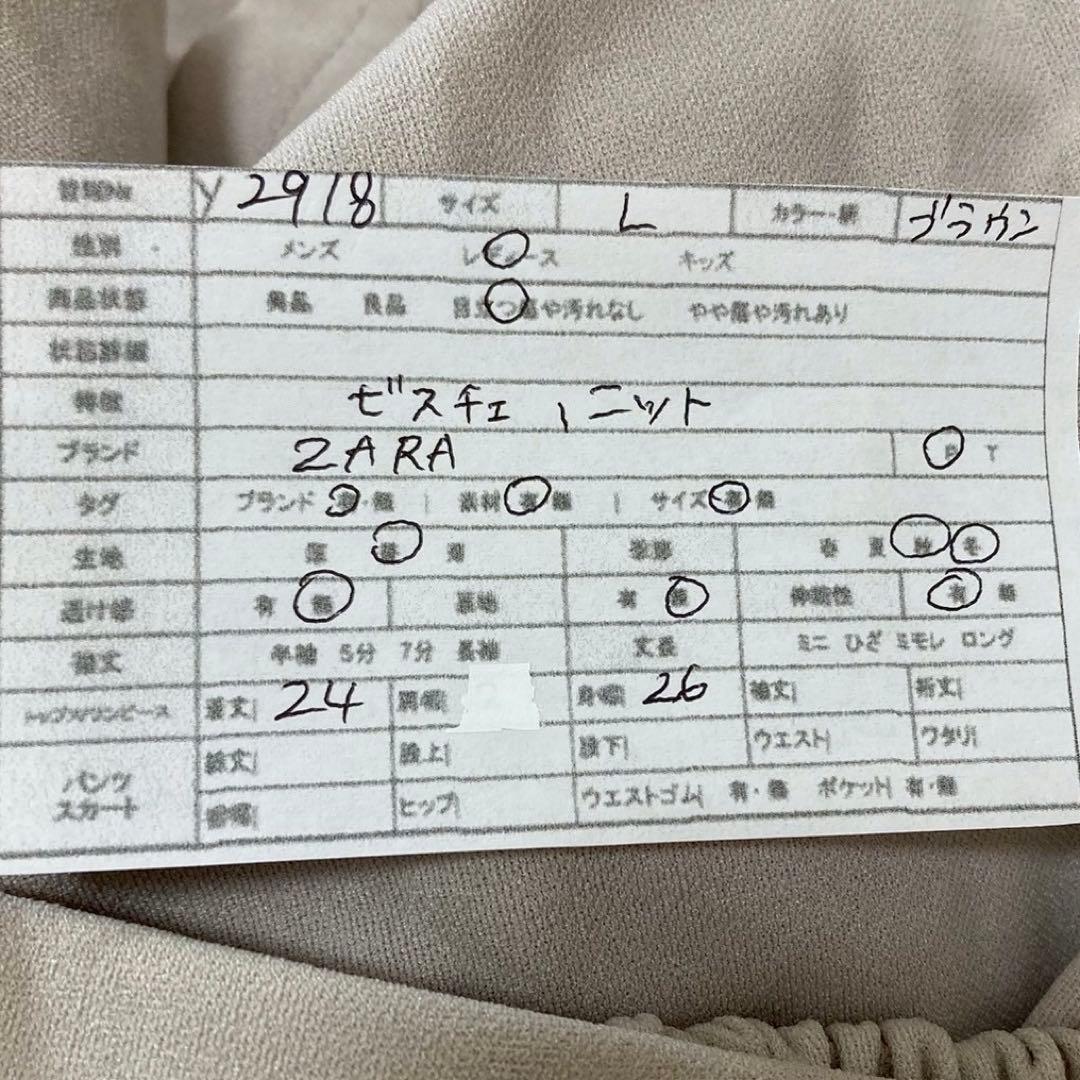 管理No y 2918 サイズ L カラー・柄 ブラウン
性別 メンズ レディース キッズ
商品状態 美品 良品 目立つ傷や汚れなし やや傷や汚れあり
状態詳細
特徴 ビスチェ、ニット
ブランド ZARA P T
タグ ブランド 有・無 | 素材 有 無 | サイズ 有 無
生地 厚 普 薄 季節 春 夏 秋 冬
透け感 有 無 裏地 有 無 伸縮性 有 無
袖丈 半袖 5分 7分 長袖 丈長 ミニ ひざ ミモレ ロング
トップス/ワンピース 着丈| 24 肩幅| 身幅| 26 袖丈| 裄丈|
パンツ スカート 総丈| 股上| 股下| ウエスト| ワタリ|
裾幅| ヒップ| ウエストゴム| 有・無 ポケット| 有・無